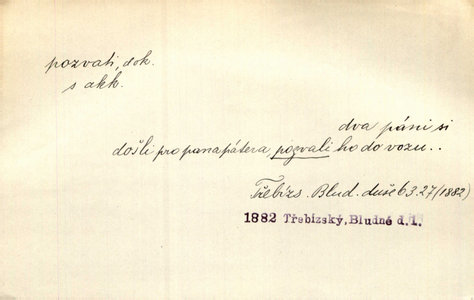 pozvati, dok.
s akk.
dva páni si
došli pro pana pátera, pozvali ho do vozu..
Třebízs. Blud. duše 63.27 (1882)
1882 Třebízský, Bludné d.1.